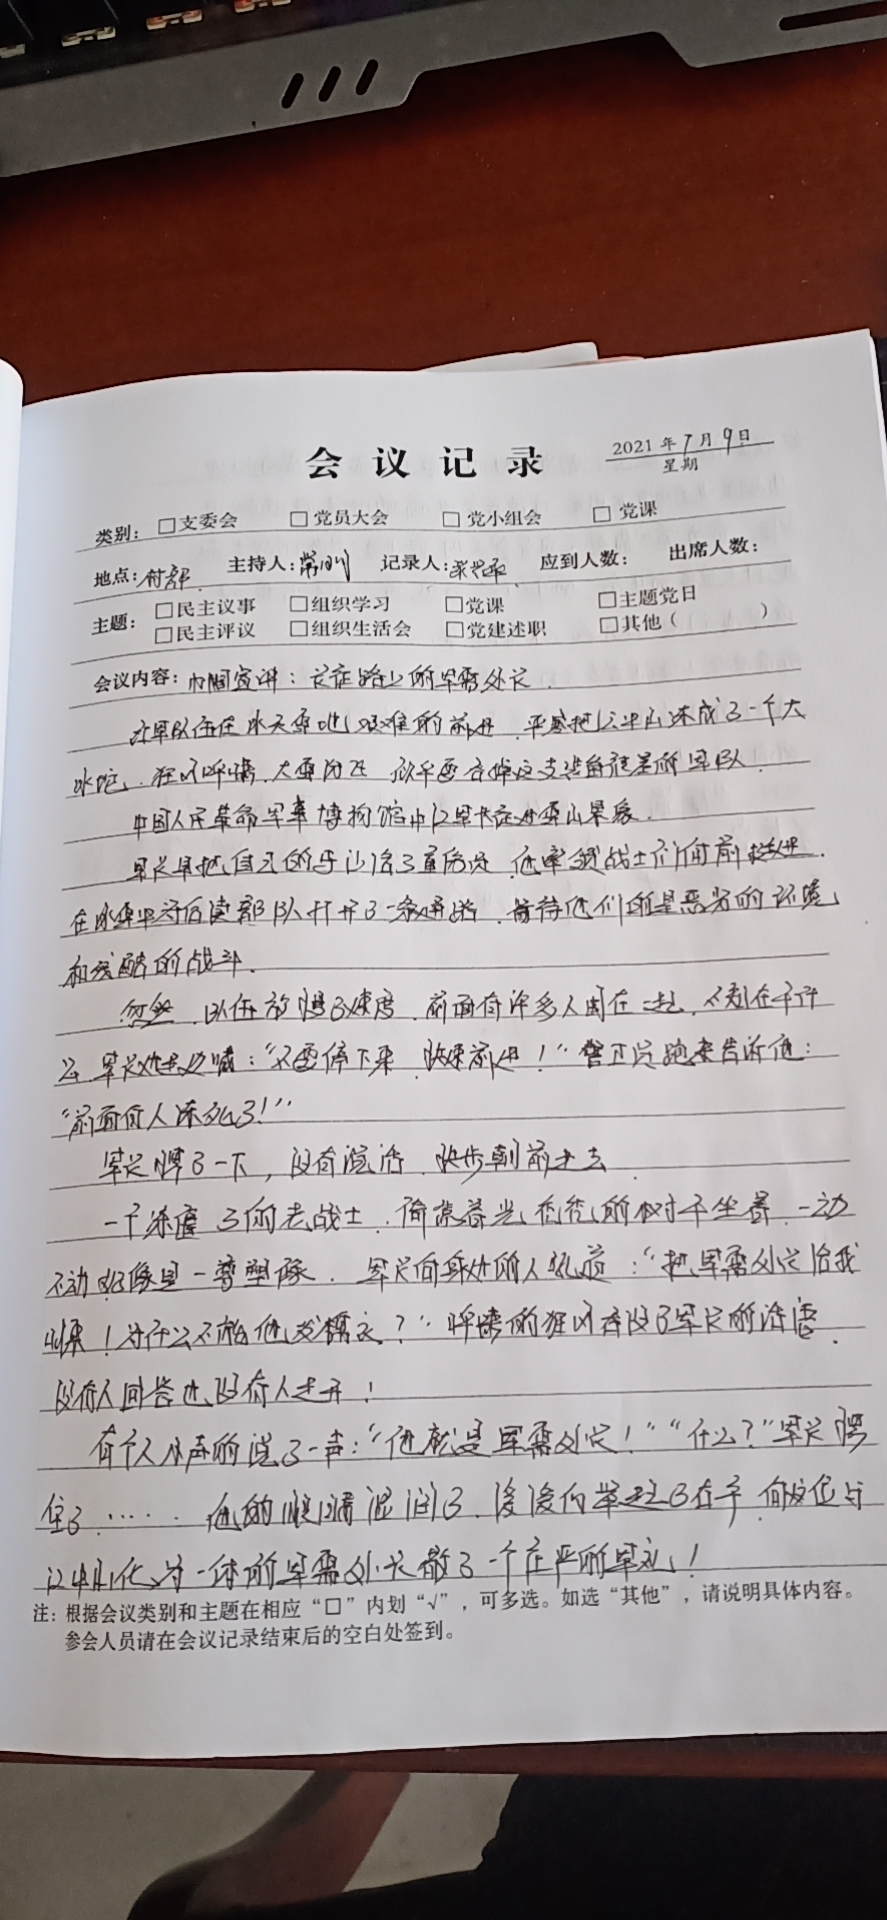 会议记录
2021年7月9日
星期
类别：□支委会 □党员大会 □党小组会 □党课
地点：村部 主持人： 记录人： 应到人数： 出席人数：
主题：□民主议事 □组织学习 □党课 □主题党日
□民主评议 □组织生活会 □党建述职 □其他（ ）
会议内容：巾帼宣讲：长征路上的军需处长
红军队伍在冰天雪地艰难的前进 严寒把云中山冻成了一个大
冰坨，狂风呼啸，大雪纷飞 似乎要吞掉这支装备很差的军队！
中国人民革命军事博物馆中红军长征过雪山景象．
军长早把自己的马让给了重伤员 他率领战士们向前挺进．
在冰雪中为后续部队打开了一条通路．等待他们的是恶劣的环境
和残酷的战斗．
忽然，队伍放慢了速度，前面有许多人围在一起，不知在干什
么 军长边走边喊：“不要停下来 快速前进！”警卫员跑来告诉他：
“前面有人冻死了！”
军长愣了一下，没有说话 快步朝前走去
一个冻僵了的老战士．倚靠着光秃秃的树干坐着．一动
不动好像是一尊塑像．军长向身边的人吼道：“把军需处长给我
叫来！为什么不给他发棉衣？”呼啸的狂风吞没了军长的话语．
没有人回答也没有人走开！
有个人小声的说了一声：“他就是军需处长！”“什么？”军长愣
住了……．他的眼睛湿润了．缓缓的举起了右手 向这位与
云中山化为一体的军需处长敬了一个庄严的军礼！
注：根据会议类别和主题在相应“□”内划“√”，可多选。如选“其他”，请说明具体内容。
参会人员请在会议记录结束后的空白处签到。